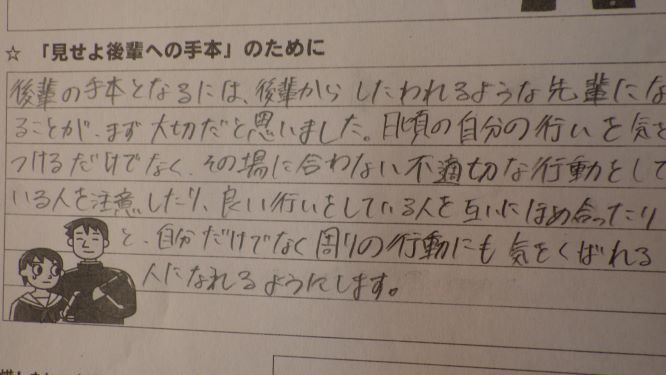 ☆ 「見せよ後輩への手本」のために
後輩の手本となるには、後輩からしたわれるような先輩にな
ることが、まず大切だと思いました。日頃の自分の行いを気を
つけるだけでなく、その場に合わない不適切な行動をして
いる人を注意したり、良い行いをしている人を互いにほめ合ったり
と、自分だけでなく周りの行動にも気をくばれる
人になれるようにします。